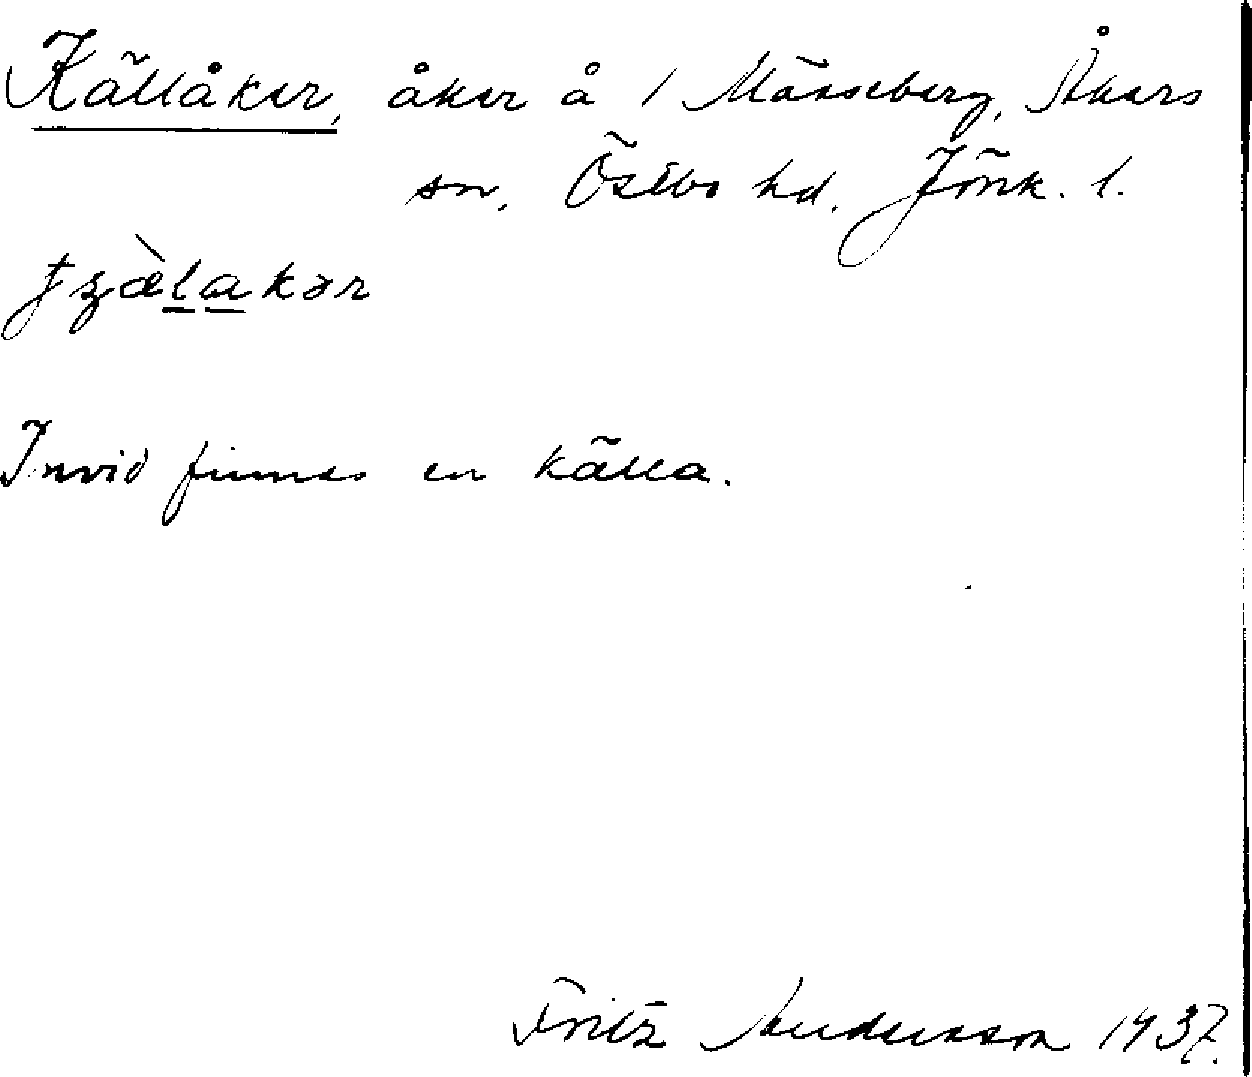 Källåker, åker å 1 Mässeberg, Åkers
sn, Östbo hd. Jönk. l.
Invid finnes en källa.
Fritz Andersson 1937.